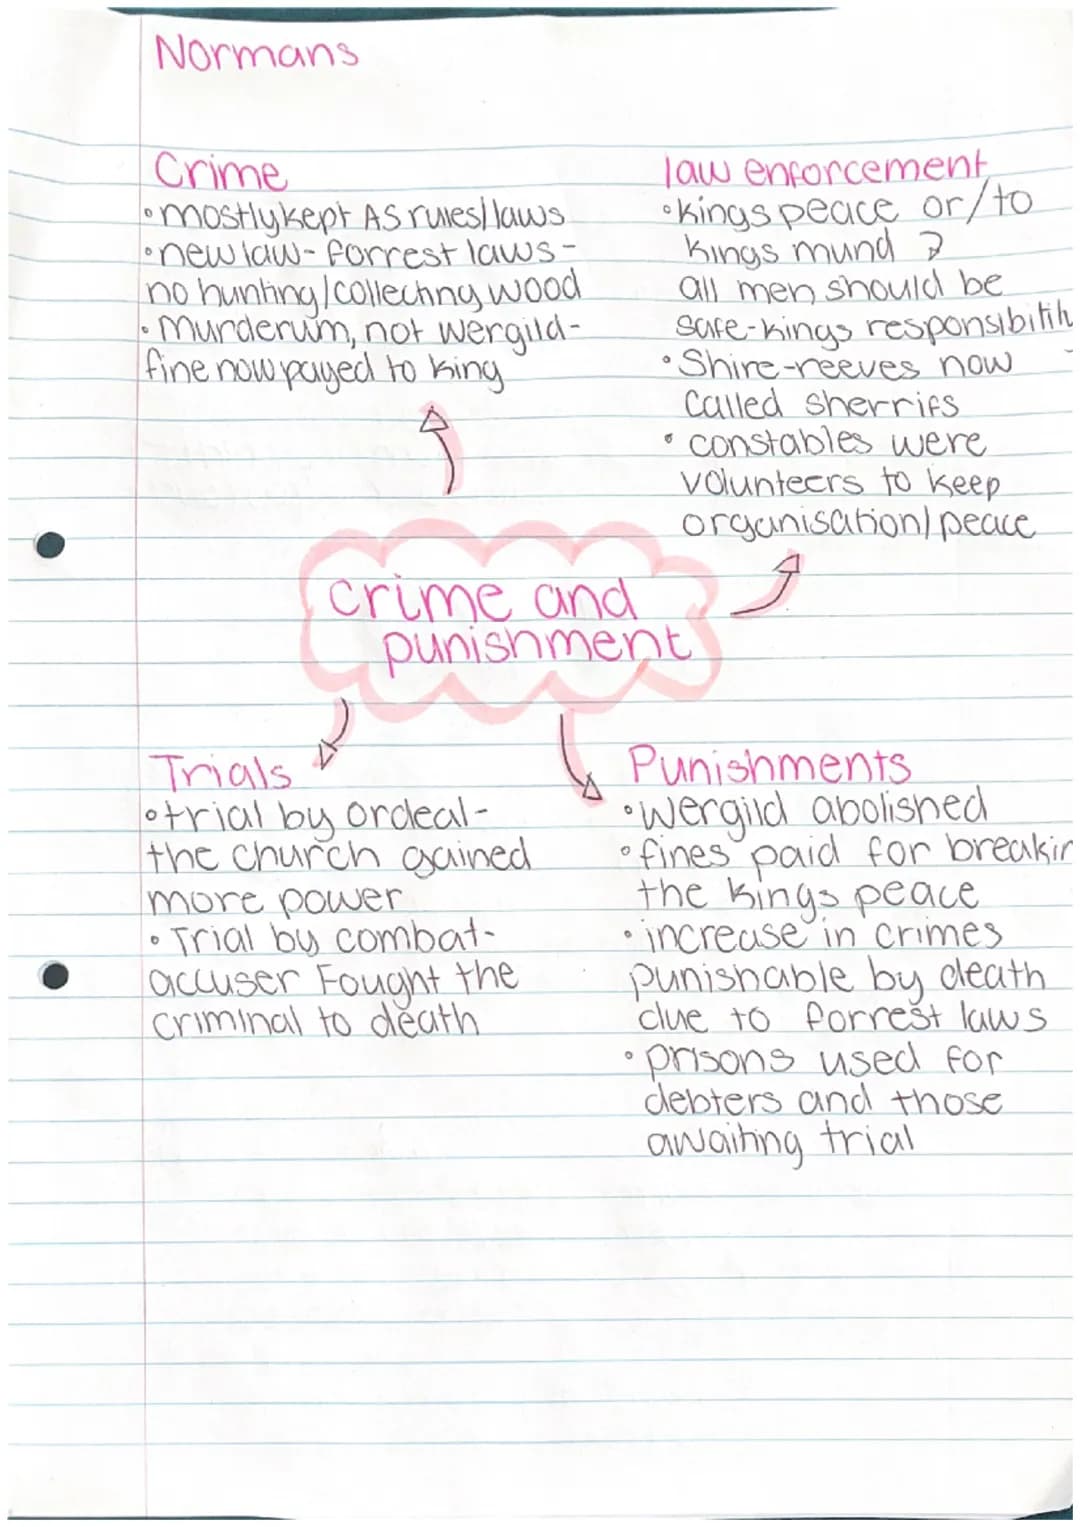 Normans
Crime
•mostly kept AS rules/laws
•new law- forrest laws-
no hunting/collecting wood
•Murderum, not wergild-
fine now payed to king
law enforcement
•kings peace or/to
kings mund ?
all men should be
safe-kings responsibility
•Shire-reeves now
called sherrifs
•constables were
volunteers to keep
organisation/peace
crime and
punishment
Trials
•trial by ordeal-
the church gained
more power
•Trial by combat-
accuser Fought the
criminal to death
Punishments
•wergild abolished
•fines paid for breakin
the kings peace
•increase in crimes
punishable by death
due to forrest laws
•prisons used for
debters and those
awaiting trial